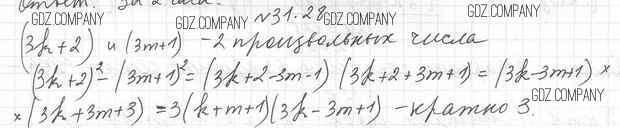 Ответ: За 2 часа.
GDZ.COMPANY №31.28 GDZ.COMPANY
(3k+2) и (3m+1) - 2 произвольных числа
GDZ.COMPANY GDZ.COMPANY
(3k+2)² - (3m+1)² = (3k+2-3m-1)(3k+2+3m+1) = (3k-3m+1) ×
× (3k+3m+3) = 3(k+m+1)(3k-3m+1) - кратно 3.
GDZ.COMPANY